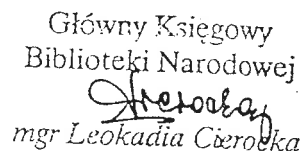 Główny Księgowy
Biblioteki Narodowej
mgr Leokadia Cierocka